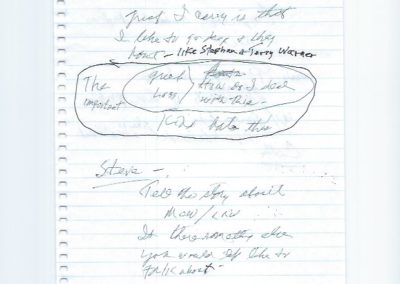 great I carry is that
I like to go deep & they
don't - like Stephan & Terry Warner
The important
great loss
How do I deal
with this -
Kids hate this
Steve -
Tell the story about
MCW /
Is there something else
you would like to
talk about -